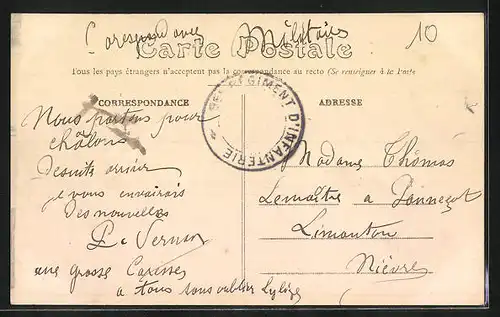 Corespondance Militaire
10
Carte Postale
Tous les pays étrangers n'acceptent pas la correspondance au recto (Se renseigner à la Poste
CORRESPONDANCE
ADRESSE
REGIMENT D'INFANTERIE
Nous partons pour
châlons
Desuite arriver
je vous envairais
Des nouvelles
une grosse Caresses
a tous sans oublier
Madame Thomas
Lemaître a Panneçot
Limanton
Nièvre